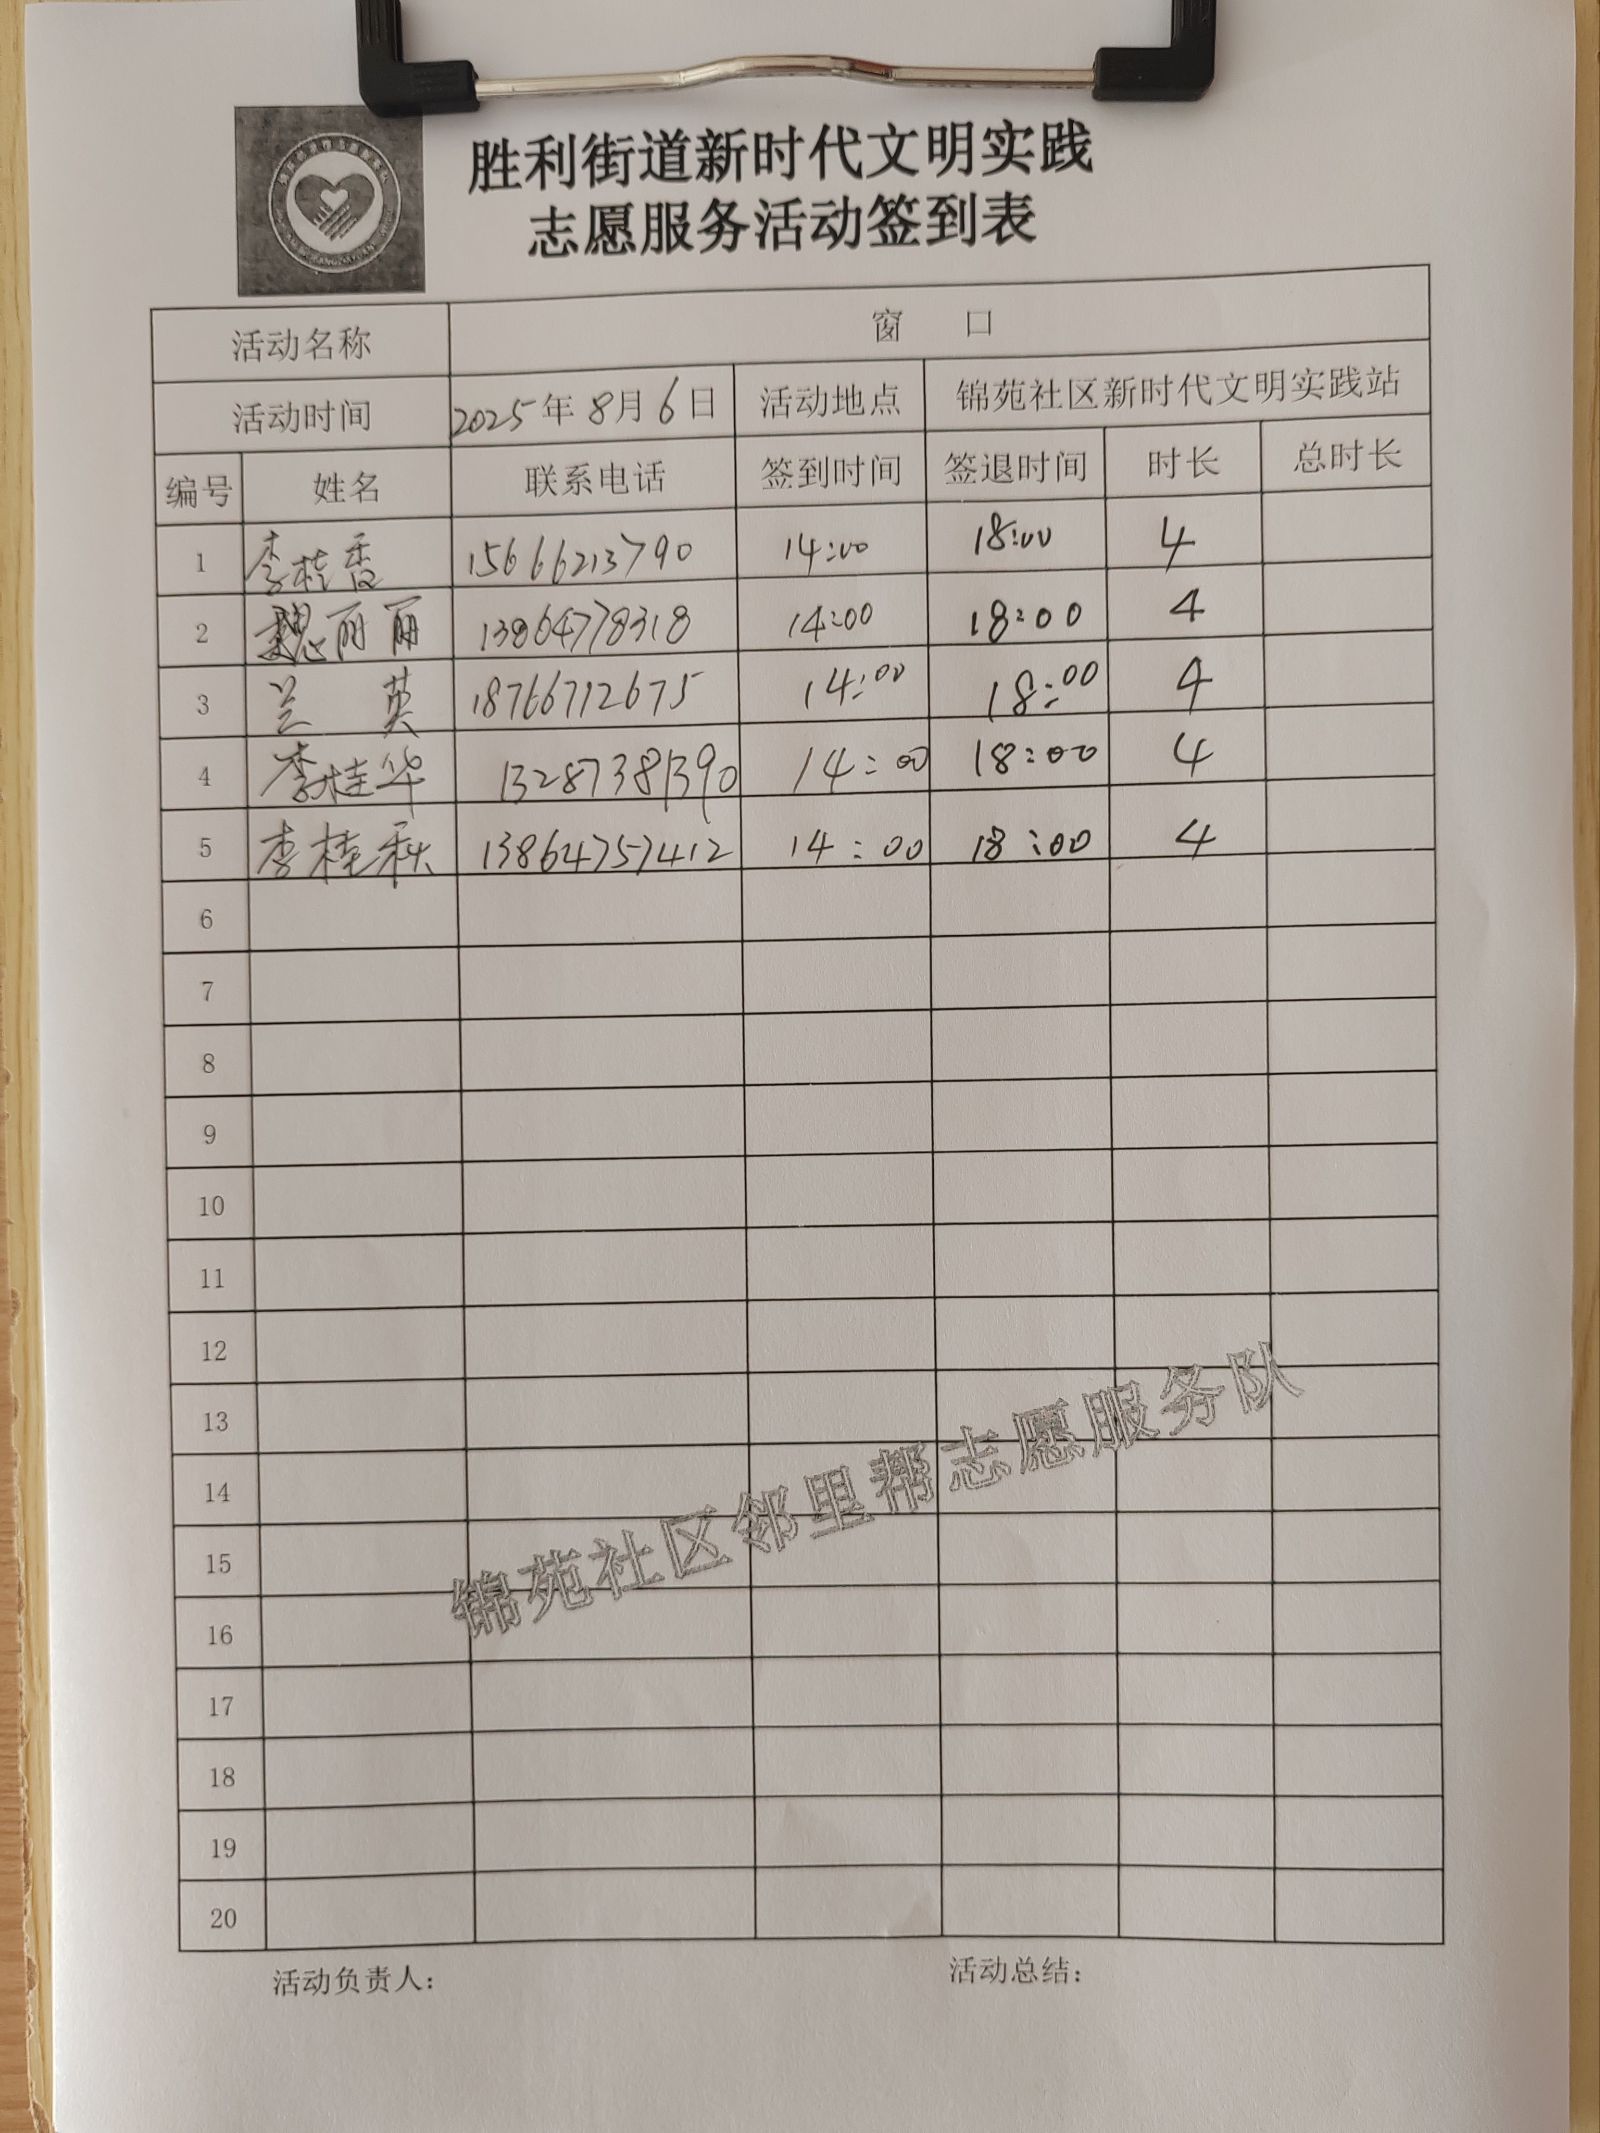 胜利街道新时代文明实践
志愿服务活动签到表
活动名称 窗 口
活动时间 2025年8月6日 活动地点 锦苑社区新时代文明实践站
编号 姓名 联系电话 签到时间 签退时间 时长 总时长
1 李桂香 15666213790 14:00 18:00 4
2 魏丽丽 13864778318 14:00 18:00 4
3 兰英 18766712675 14:00 18:00 4
4 李桂华 13287381390 14:00 18:00 4
5 李桂秋 13864757412 14:00 18:00 4
6
7
8
9
10
11
12
13
14
15
16
17
18
19
20
锦苑社区邻里帮志愿服务队
活动负责人： 活动总结：